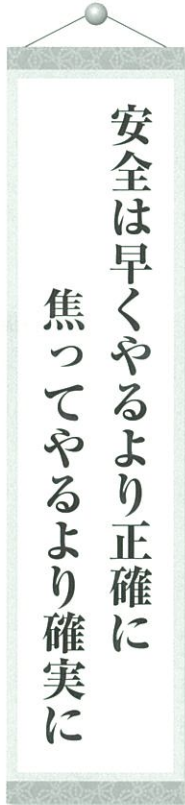 安全は早くやるより正確に
焦ってやるより確実に